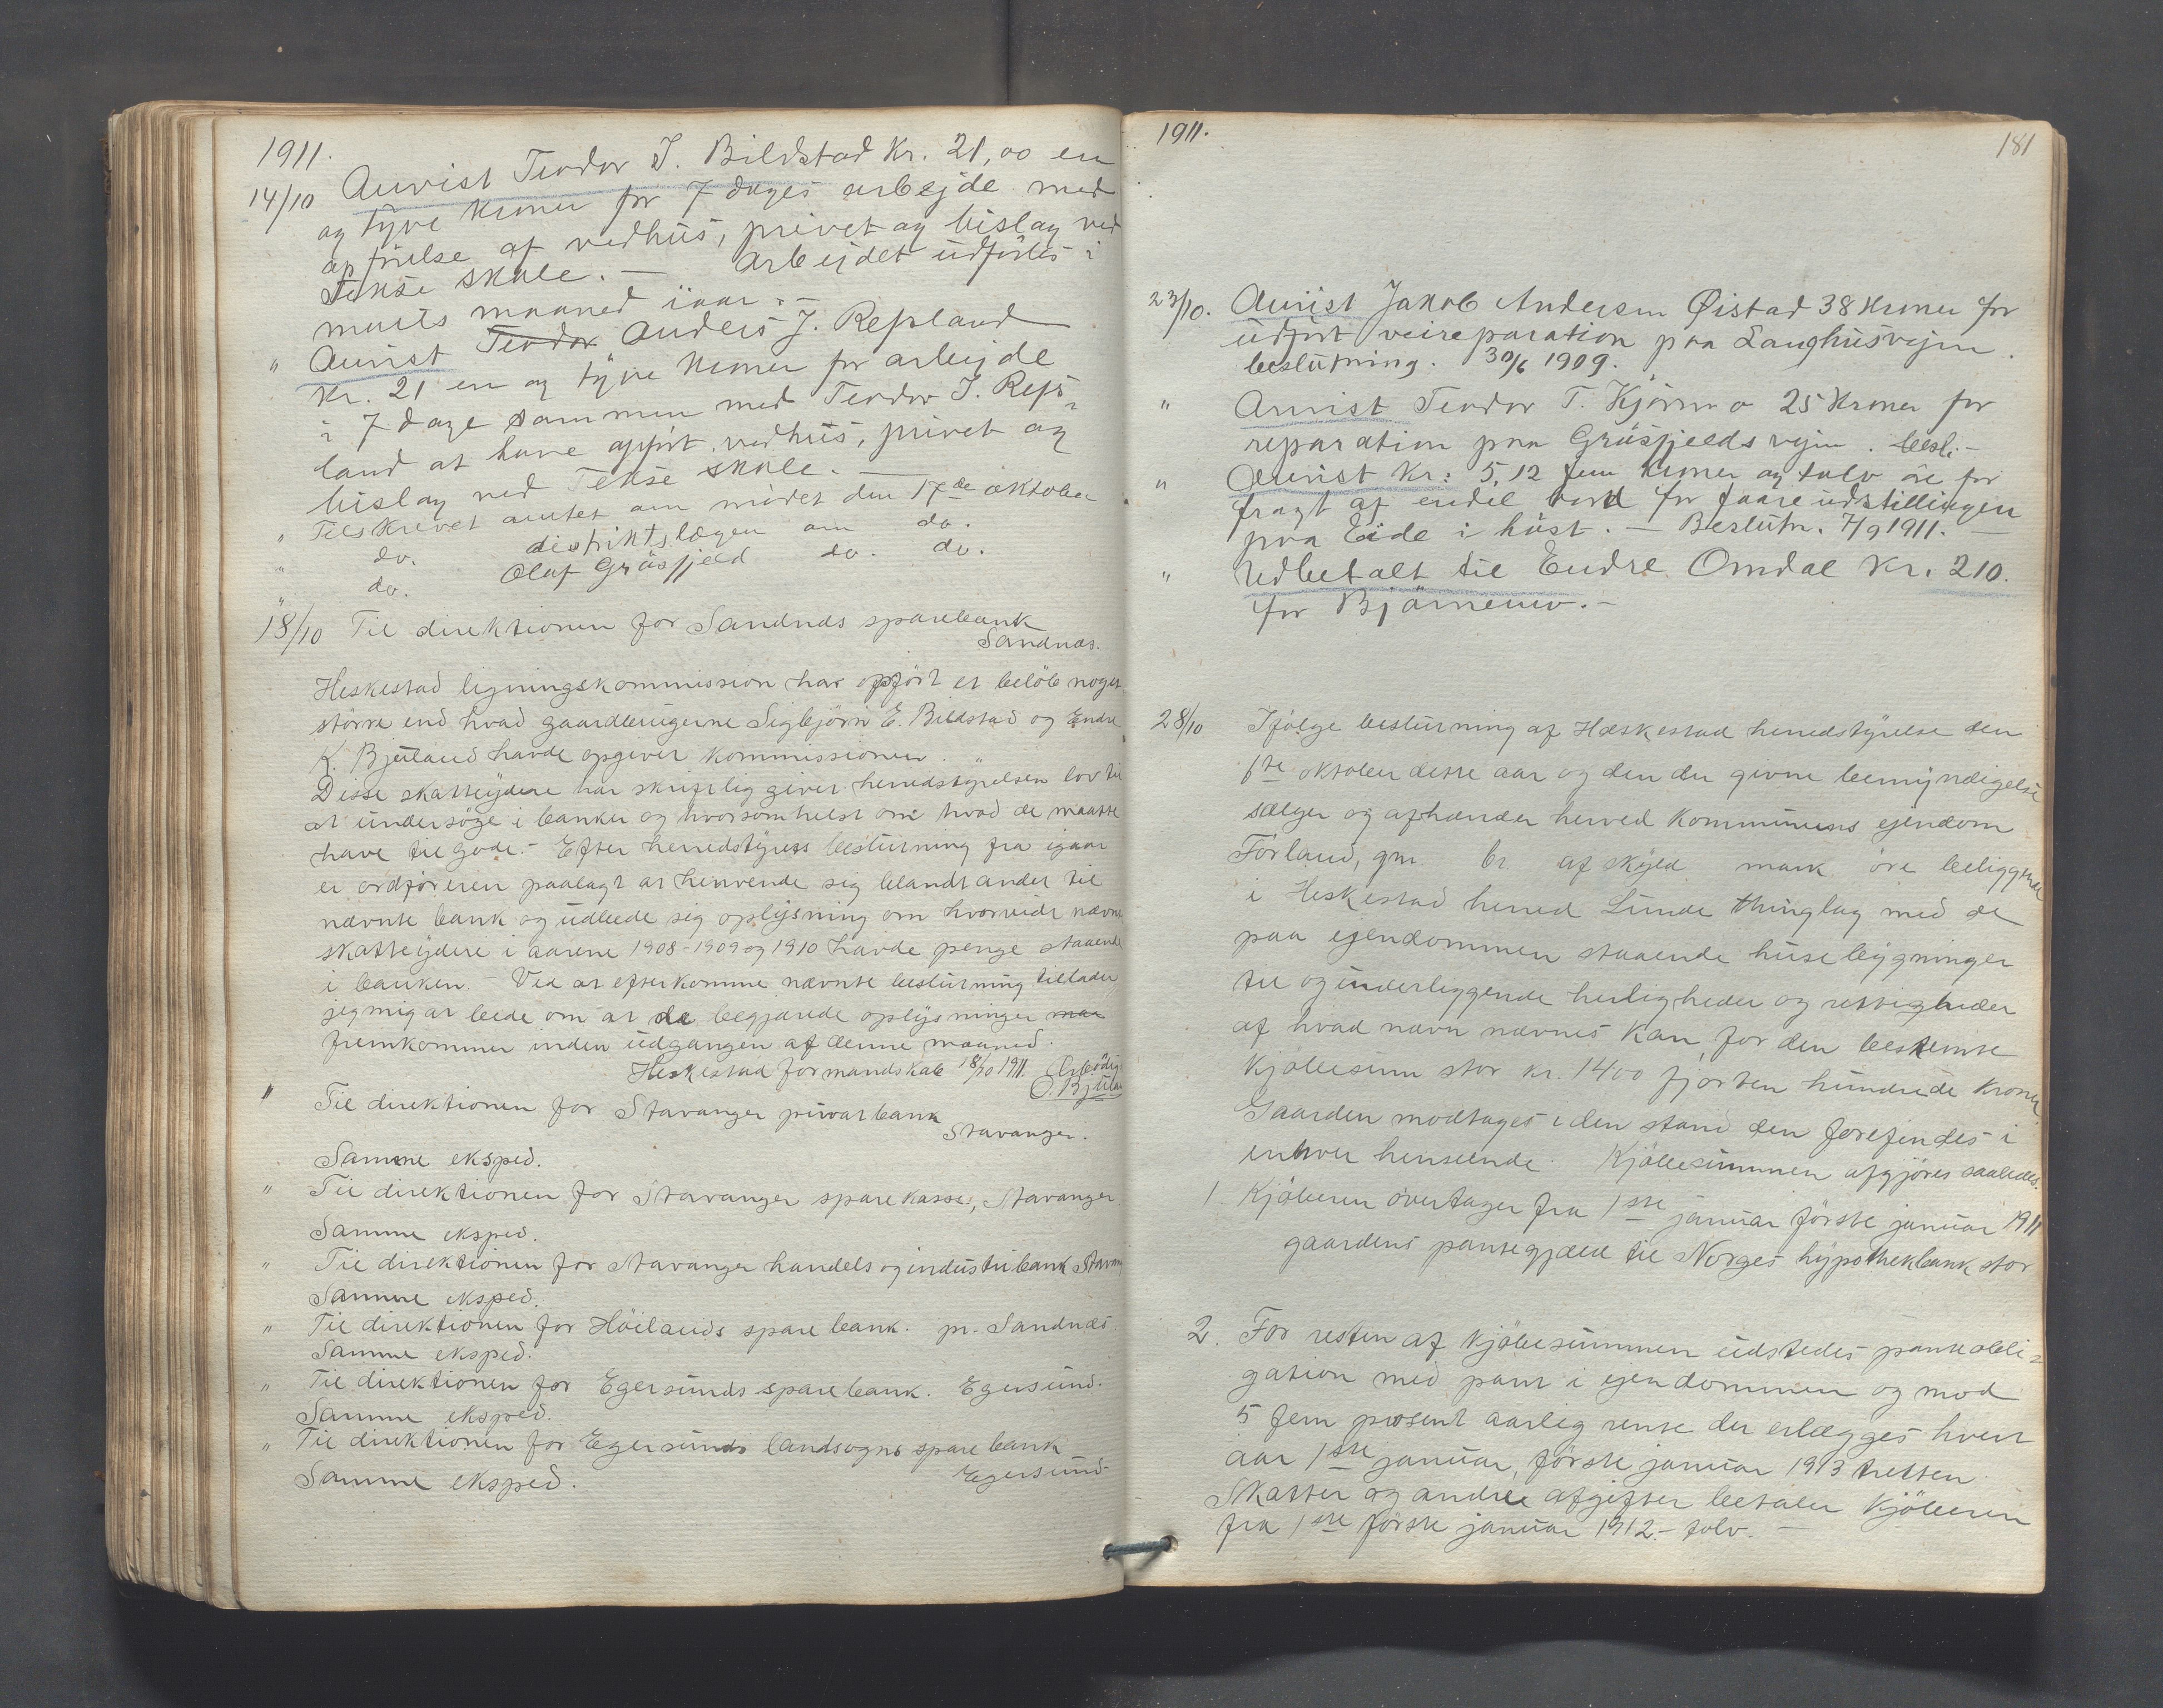 1911.
14/10 Anvist Teodor J. Bildstad Kr. 21,00 en
og tyve kroner for 7 dages arbejde med
opförelse af vedhus, privet og bislag ved
Tekse skole. — Arbejdet udförtes i
marts maaned iaar. —
" Anvist Teodor Anders J. Repsland
Kr. 21 en og tyve kroner for arbejde
i 7 dage sammen med Teodor J. Reps-
land at have opfört vedhus, privet og
bislag ved Tekse skole. —
" Tilskrevet amtet om mödet den 17de oktober
" do. distriktslægen om do.
" do. Olaf Gräsfjeld do. do.
18/10 Til direktionen for Sandnæs sparebank
Sandnæs.
Heskestad ligningskommission har opfört et belöb noget
större end hvad gaardbrugerne Sigbjörn E. Bildstad og Endre
K. Bjuland havde opgivet kommissionen.
Disse skatteydere har skriftlig givet herredstyrelsen lov til
at undersöge i banker og hvorsomhelst om hvad de maatte
have tilgode. - Efter herredstyrets beslutning fra igaar
er ordföreren paalagt at henvende sig blandt andet til
nævnte bank og udbede sig oplysning om hvorvidt nævnte
skatteydere i aarene 1908-1909 og 1910 havde penge staaende
i banken. - Ved at efterkomme nævnte beslutning tillader
jeg mig at bede om at de begjærede oplysninger maa
fremkommer inden udgangen af denne maaned.
Heskestad formandskab 18/10 1911 Ærbödigst
O. Bjuland
" Til direktionen for Stavanger privatbank
Stavanger.
Samme eksped.
" Til direktionen for Stavanger sparekasse, Stavanger
Samme eksped.
" Til direktionen for Stavanger handels og industribank Stavang
Samme eksped.
" Til direktionen for Höilands sparebank. pr. Sandnæs.
Samme eksped.
" Til direktionen for Egersunds sparebank. Egersund.
Samme eksped.
" Til direktionen for Egersunds landsogns sparebank
Egersund
Samme eksped.
1911.
181
23/10. Anvist Jakob Andersen Øistad 38 kroner for
udfört veireparation paa Langhusvejen.
beslutning. 30/6 1909.
" Anvist Teodor T. Kjörmo 25 kroner for
reparation paa Gräsfjeldsvejen. besl. -
" Anvist kr: 5,12 fem kroner og tolv öre for
fragt af endel bord for faareudstillingen
paa Eide i höst. — Beslutn. 7/9 1911. —
" Udbetalt til Endre Omdal kr. 210.
for Bjärnemo. -
28/10 Ifölge beslutning af Heskestad herredstyrelse den
6te oktober dette aar og den der givne bemyndigelse
sælger og afhænder herved kommunens ejendom
Förland, gnr. br. af skyld mark öre beliggende
i Heskestad herred Lunde thinglag med de
paa ejendommen staaende huse bygninger
til og underliggende herligheder og rettigheder
af hvad navn nævnes kan, for den bestemte
kjöbesum stor kr. 1400 fjorten hundrede kroner
Gaarden modtages i den stand den forefindes i
enhver henseende. Kjöbesummen afgjöres saaledes.
1 Kjöberen overtager fra 1ste januar förste januar 1911
gaardens pantegjæld til Norges hypothekbank stor
2. For resten af kjöbesummen udstedes panteobli-
gation med pant i ejendommen og mod
5 fem prosent aarlig rente der erlægges hvert
aar 1ste januar, förste januar 1913 tretten
Skatter og andre afgifter betaler kjöberen
fra 1ste förste januar 1912. - tolv. -